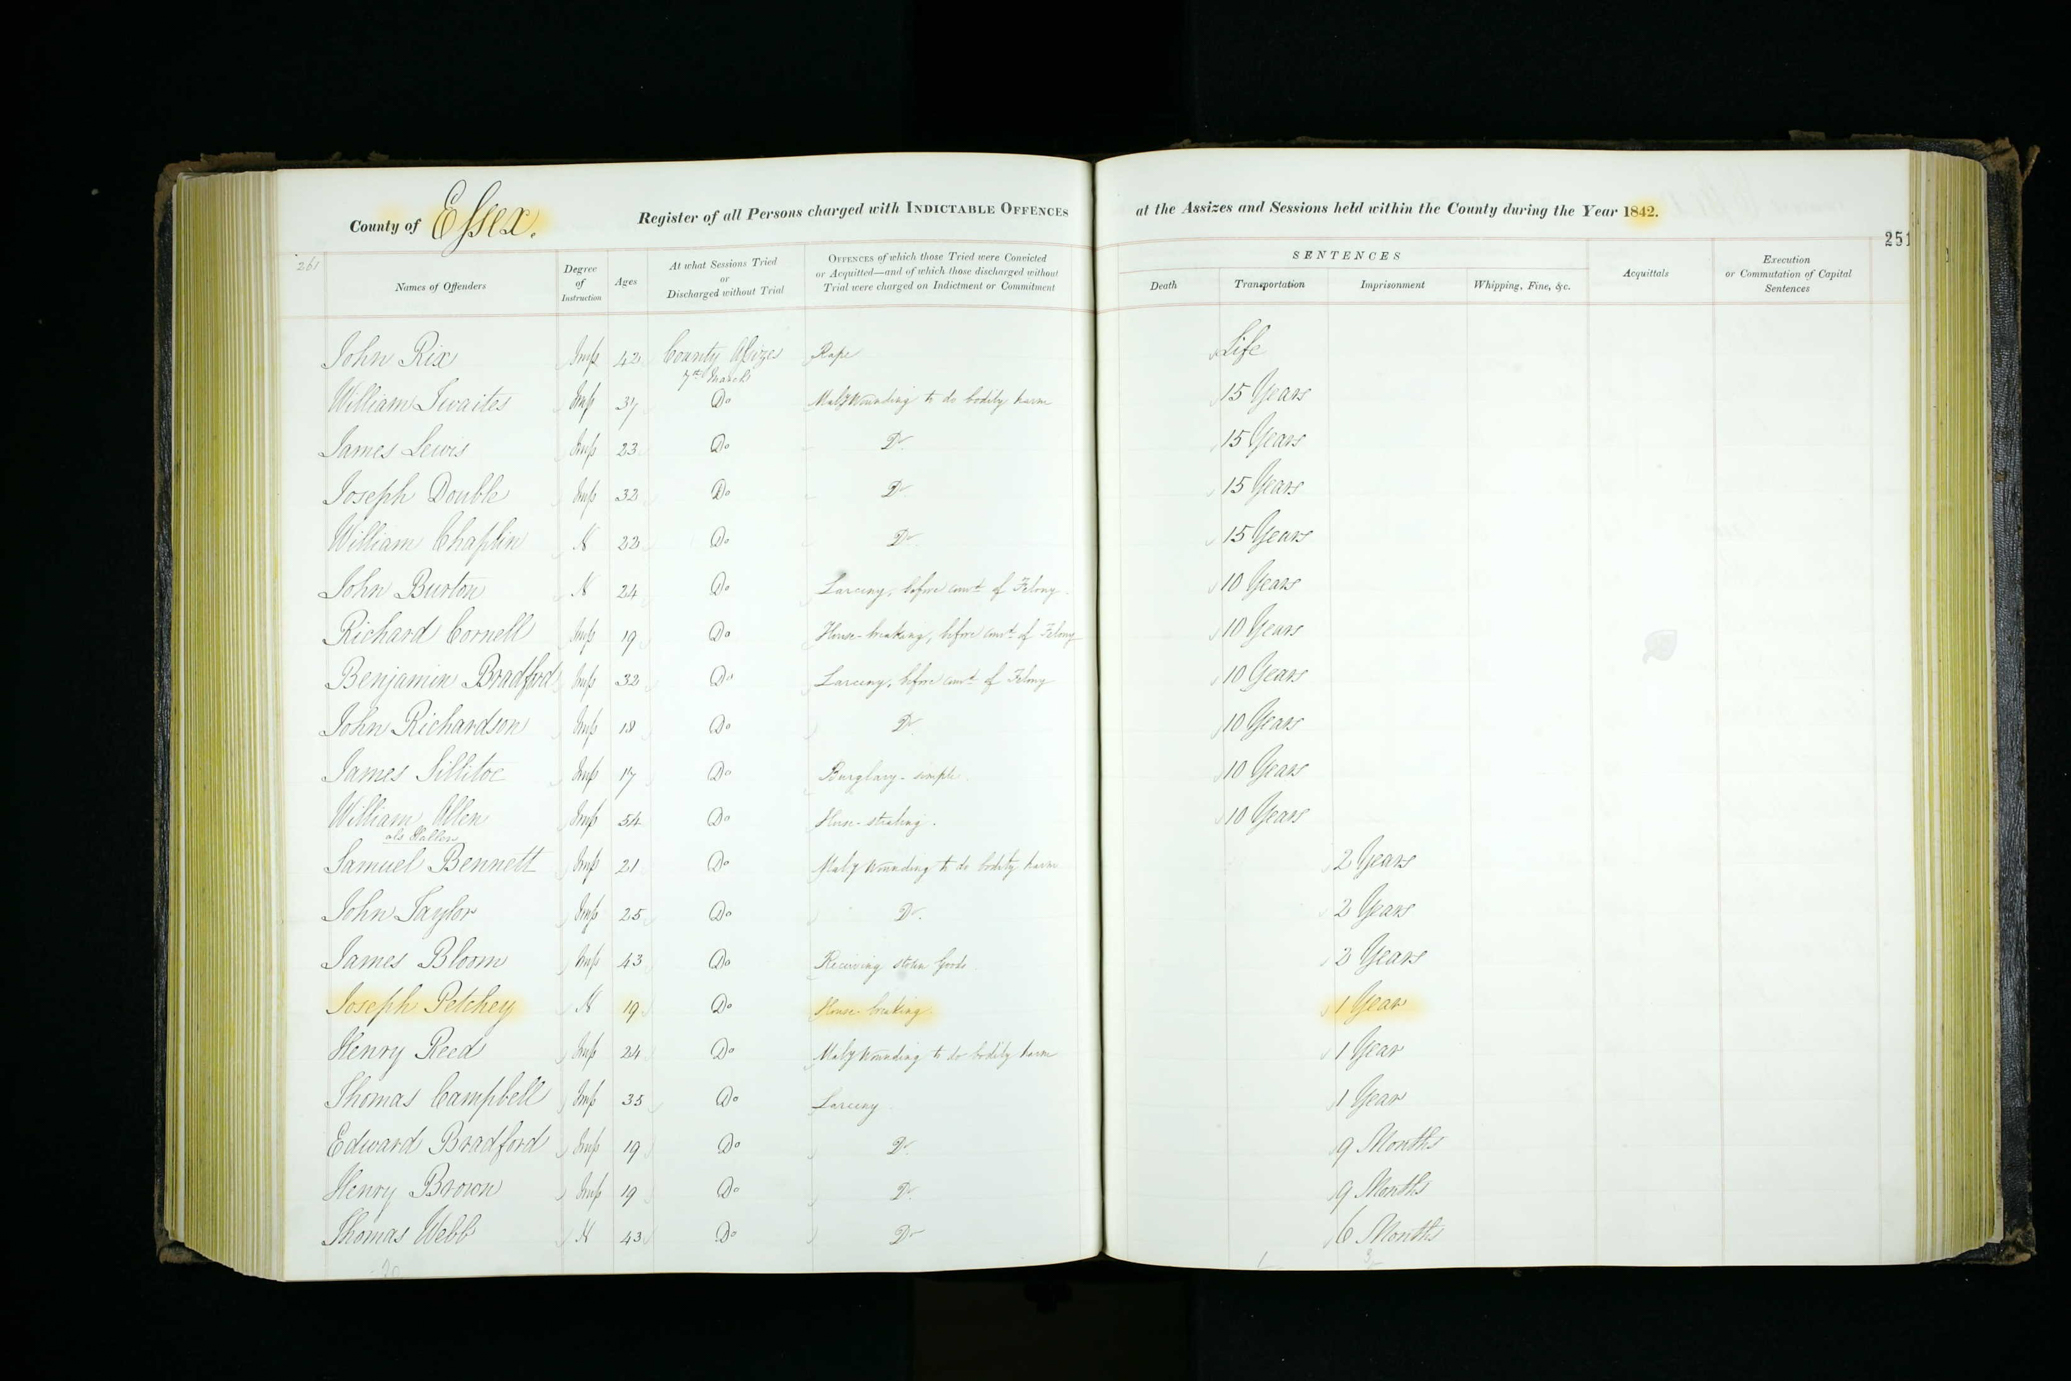 County of Essex.
Register of all Persons charged with INDICTABLE OFFENCES at the Assizes and Sessions held within the County during the Year 1842.
251
261
Names of Offenders
Degree of Instruction
Ages
At what Sessions Tried or Discharged without Trial
OFFENCES of which those Tried were Convicted or Acquitted—and of which those discharged without Trial were charged on Indictment or Commitment
SENTENCES
Death
Transportation
Imprisonment
Whipping, Fine, &c.
Acquittals
Execution or Commutation of Capital Sentences
John Rix Imp 42 County Assizes 7th March Rape Life
William Twaites Imp 37 Do Maly Wounding to do bodily harm 15 Years
James Lewis Imp 23 Do Do 15 Years
Joseph Double Imp 32 Do Do 15 Years
William Chaplin N 22 Do Do 15 Years
John Burton N 24 Do Larceny, before convd of Felony 10 Years
Richard Cornell Imp 19 Do House-breaking, before convd of Felony 10 Years
Benjamin Bradford Imp 32 Do Larceny, before convd of Felony 10 Years
John Richardson Imp 18 Do Do 10 Years
James Sillitoe Imp 17 Do Burglary - simple 10 Years
William Allen Imp 54 Do Horse-stealing. 10 Years
als Hallen
Samuel Bennett Imp 21 Do Maly Wounding to do bodily harm 2 Years
John Taylor Imp 25 Do Do 2 Years
James Bloom Imp 43 Do Receiving stolen Goods 2 Years
Joseph Petchey N 19 Do House-breaking. 1 Year
Henry Reed Imp 24 Do Maly Wounding to do bodily harm 1 Year
Thomas Campbell Imp 35 Do Larceny 1 Year
Edward Bradford Imp 19 Do Do 9 Months
Henry Brown Imp 19 Do Do 9 Months
Thomas Webb N 43 Do Do 6 Months